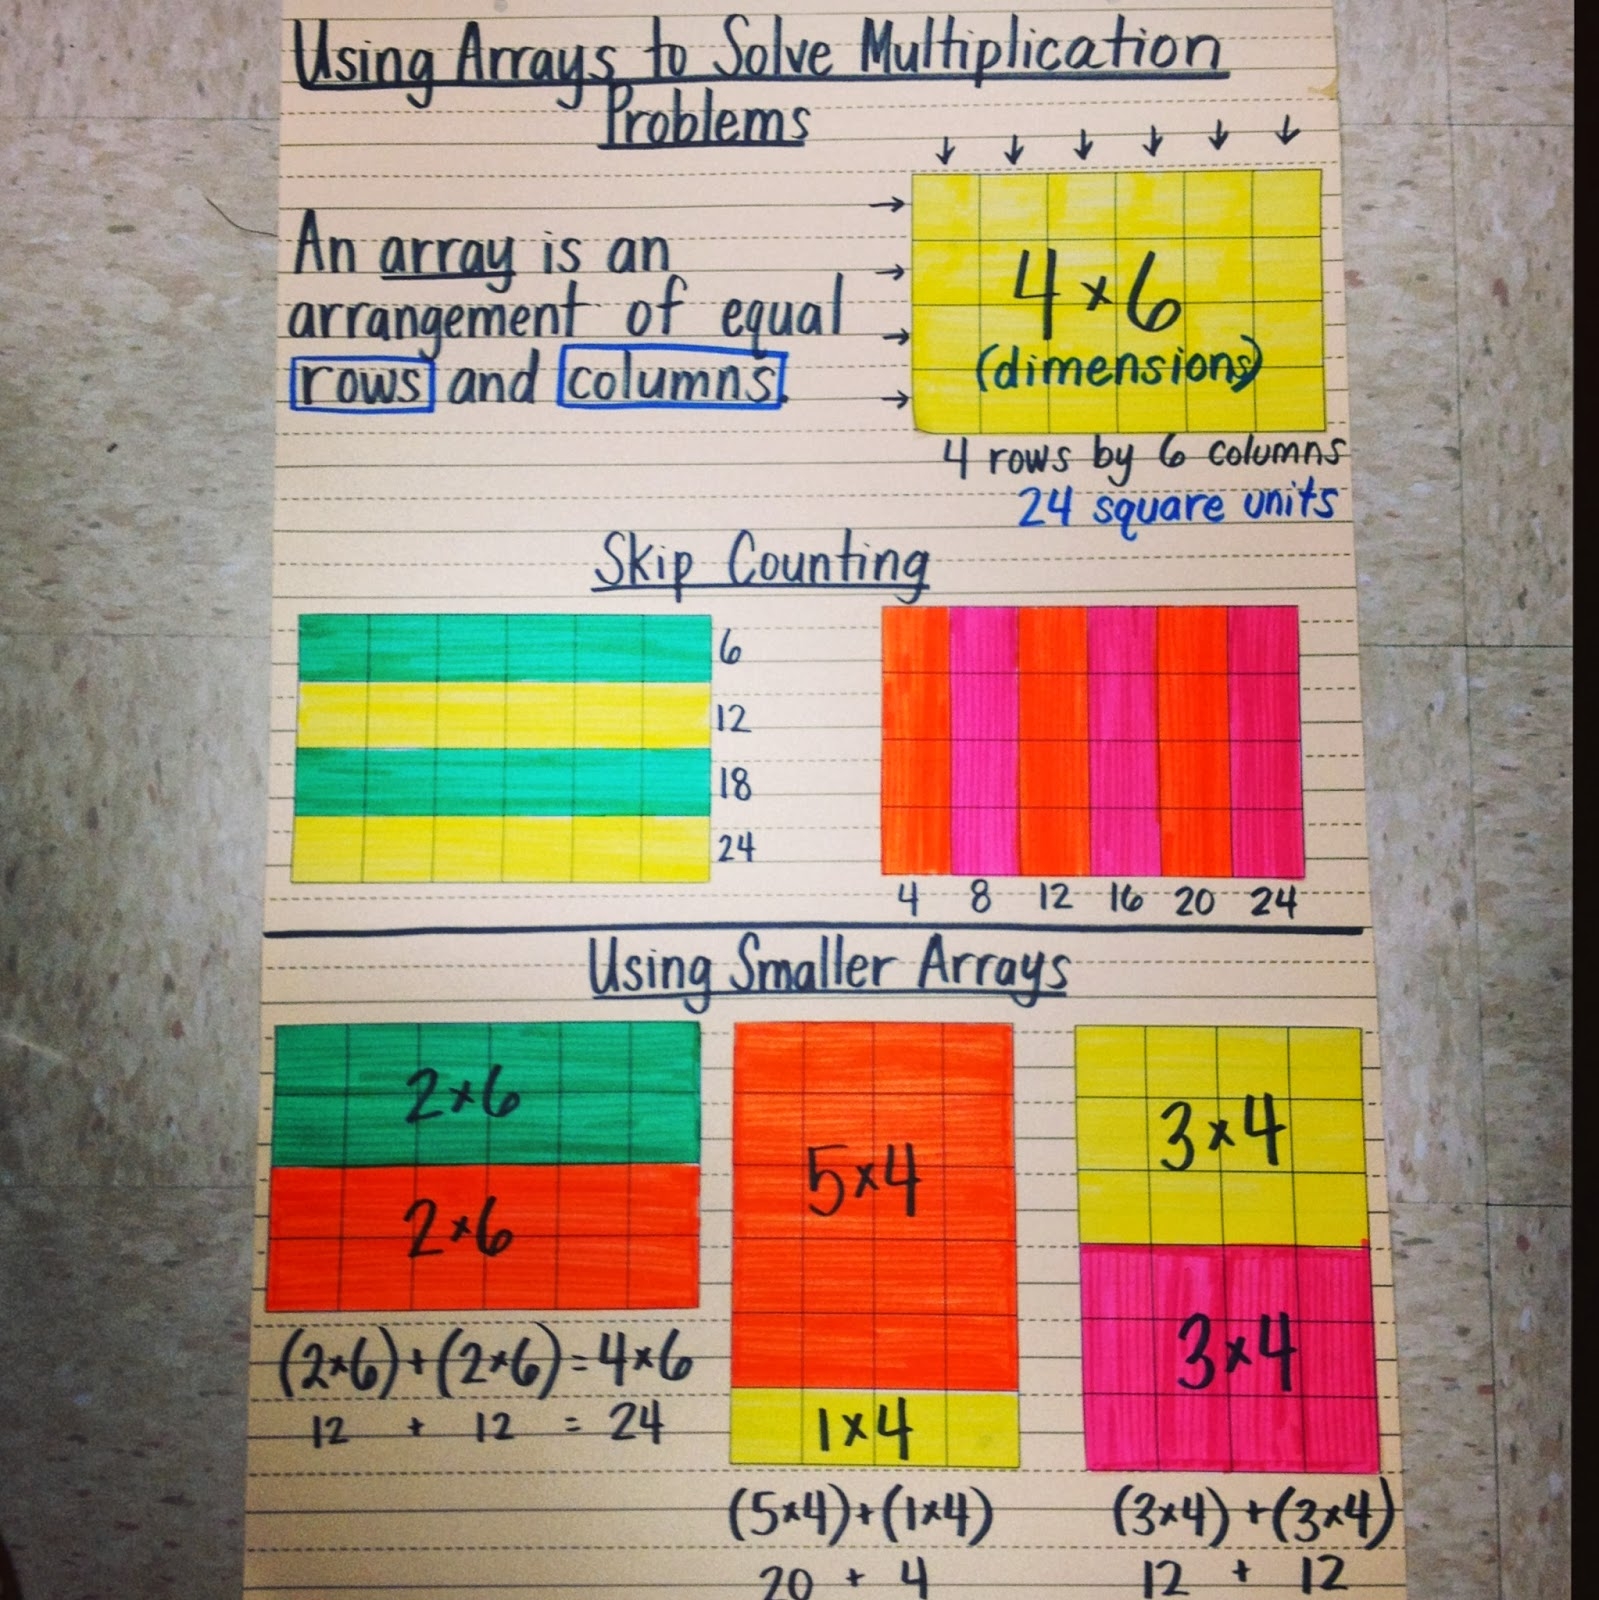 Using Arrays to Solve Multiplication
Problems
An array is an
arrangement of equal
rows and columns.
4×6
(dimensions)
4 rows by 6 columns
24 square units
Skip Counting
6
12
18
24
4 8 12 16 20 24
Using Smaller Arrays
2×6
2×6
(2×6)+(2×6)=4×6
12 + 12 = 24
5×4
1×4
(5×4)+(1×4)
20 + 4
3×4
3×4
(3×4)+(3×4)
12 + 12